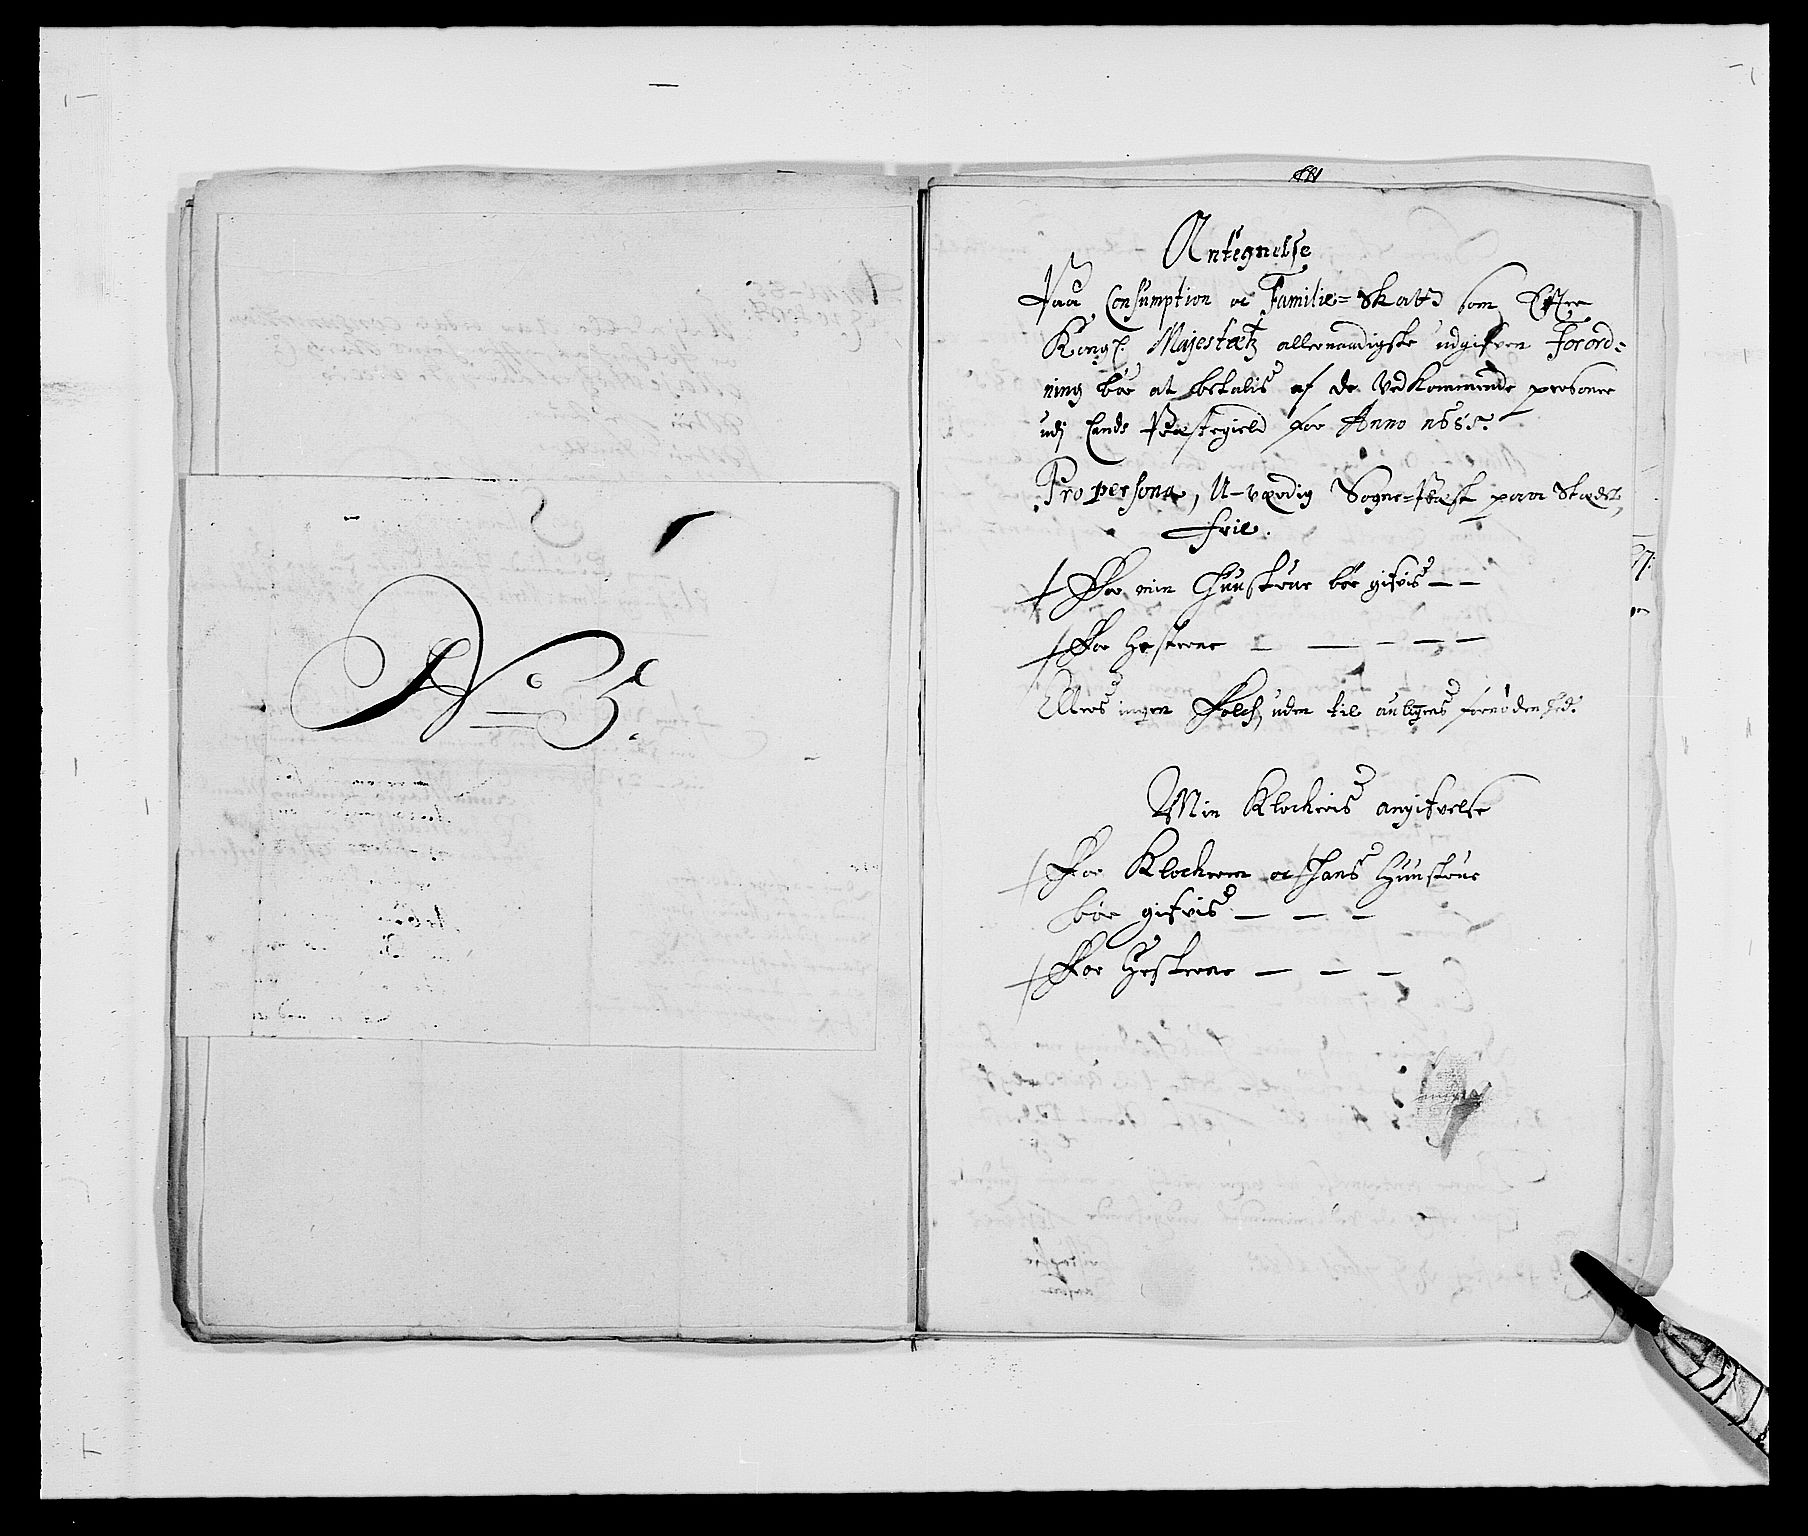 No 3.
Antegnelse
Paa Consumption oc Familie=Skatt som Efter
Kongl: Majestætz allernaadigste udgifven Forord=
ning bør at betalis af de vedkommende personer
udj Lands Præstegield for Anno 1685.
Pro persona, U-værdig Sogne=Præst paa Stædet,
friie.
For min Huustrue bør gifvis — —
For Hesterne — — — — —
Ellers ingen Folch, uden til aulgens fornødenhed.
Min Klockeris angifvelse
For Klockeren oc Hans Huustrue
bør gifvis — — —
For Hesterne — — —